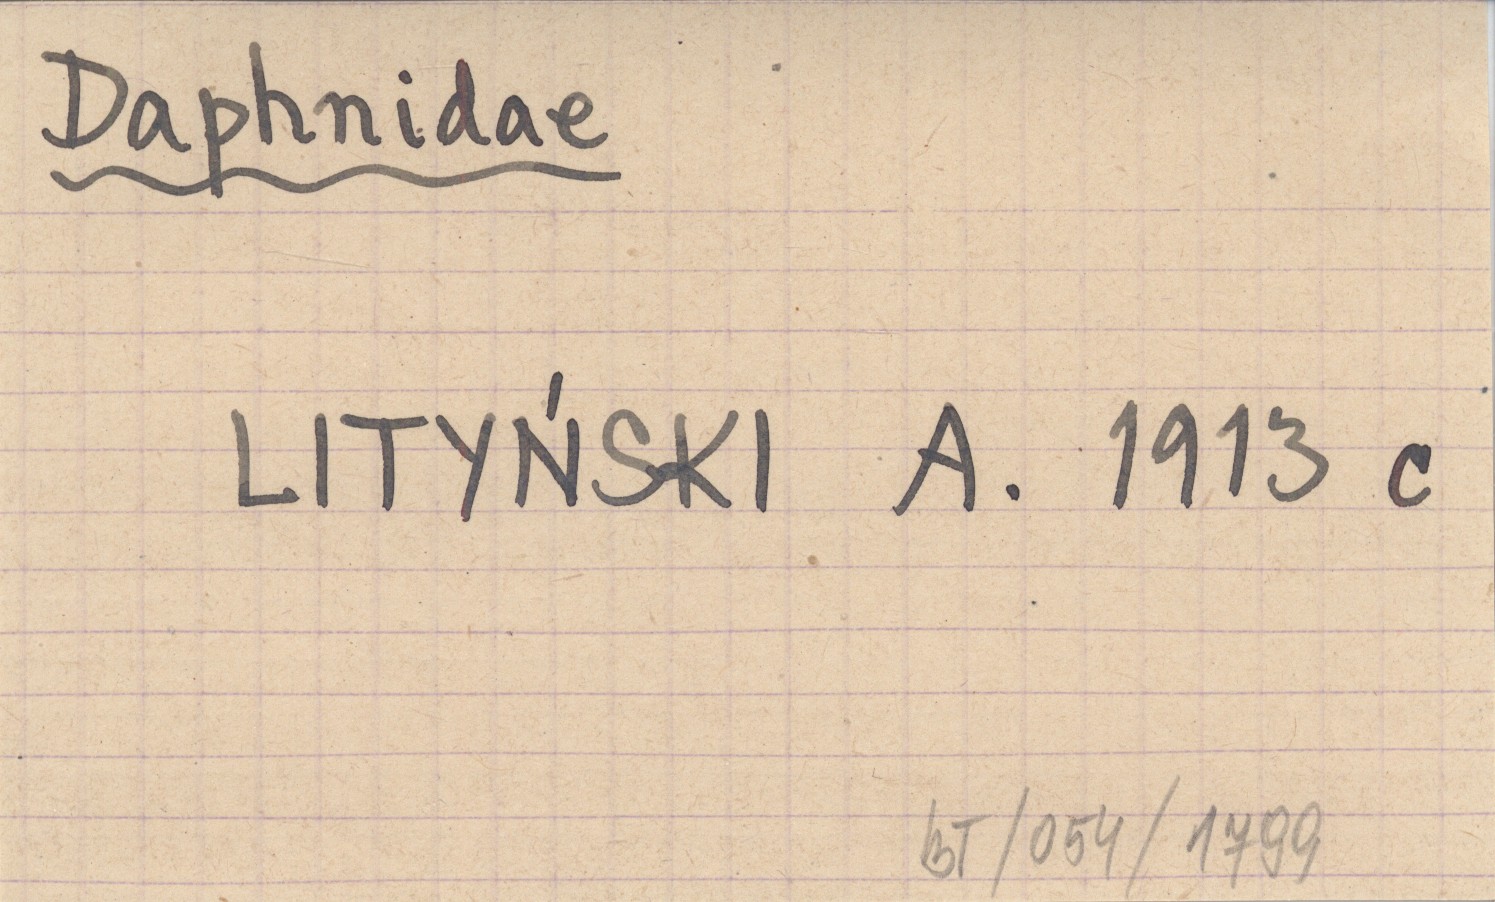 Daphnidae
LITYŃSKI A. 1913 c
BT/054/1799